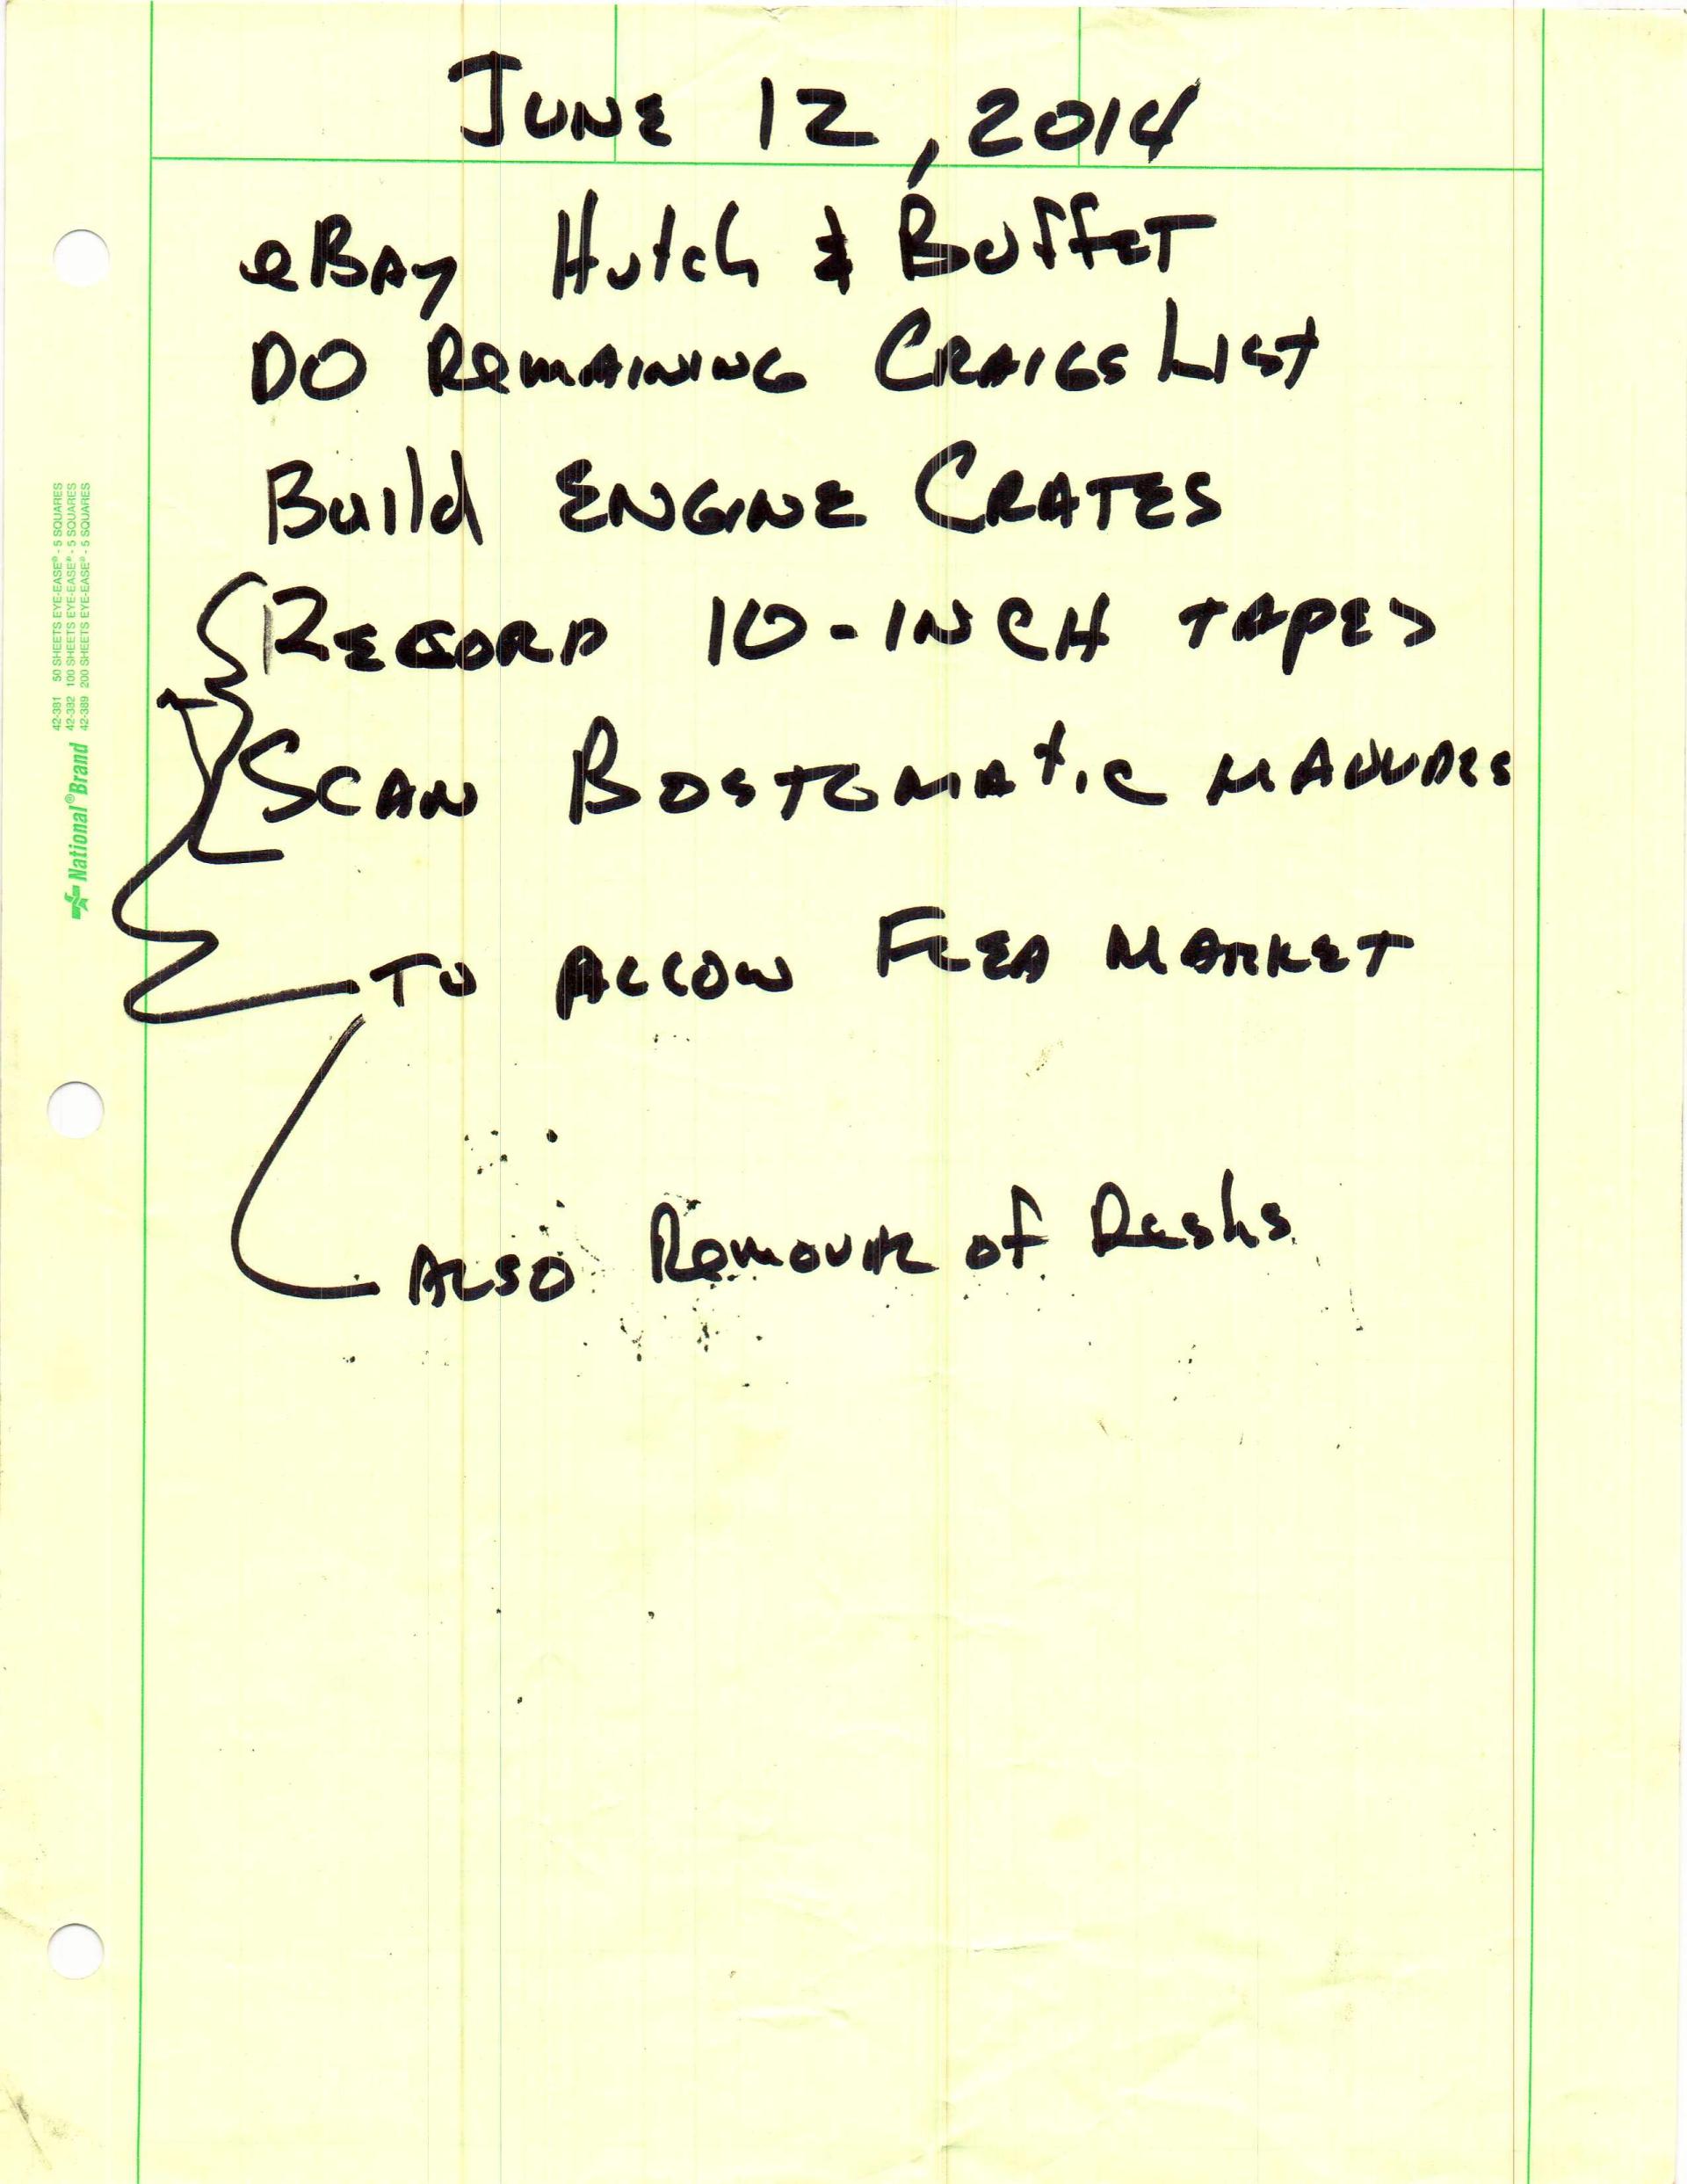 June 12, 2014
eBay Hutch & Buffet
Do Remaining CraigsList
Build Engine Crates
Record 10-inch tapes
Scan Bostomatic Manuals
To Allow Flea Market
Also Removal of Desks
42-381 50 SHEETS EYE-EASE® - 5 SQUARES
42-382 100 SHEETS EYE-EASE® - 5 SQUARES
42-389 200 SHEETS EYE-EASE® - 5 SQUARES
National® Brand